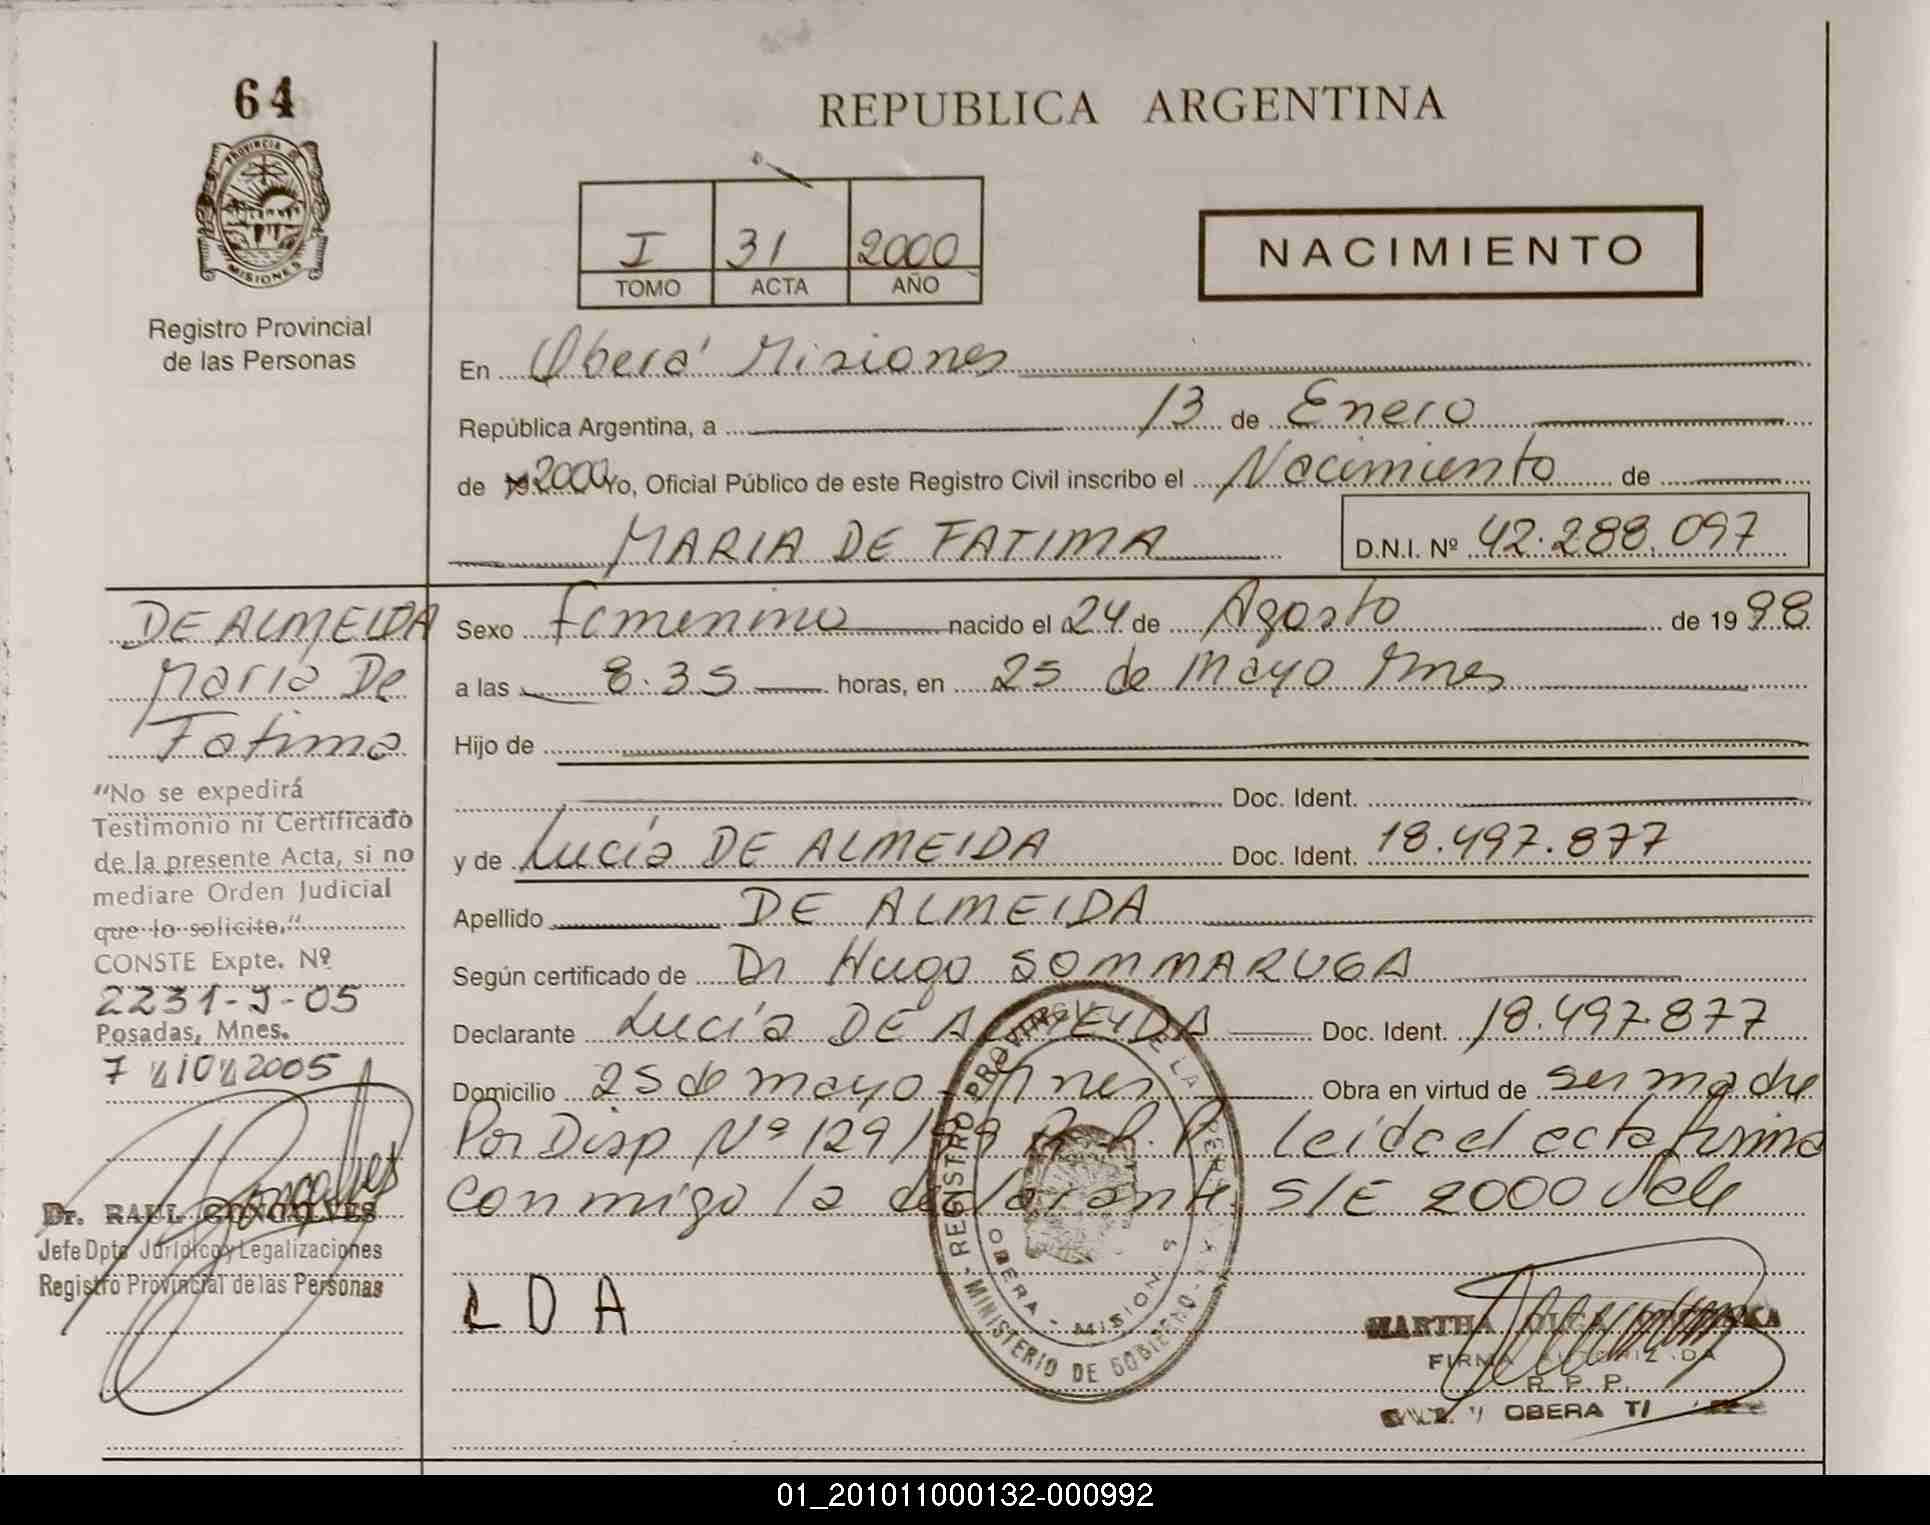 64
PROVINCIA DE
MISIONES
Registro Provincial
de las Personas
REPUBLICA ARGENTINA
I 31 2000
TOMO ACTA AÑO
NACIMIENTO
En Oberá Misiones
República Argentina, a 13 de Enero
de 19 2000 Yo, Oficial Público de este Registro Civil inscribo el Nacimiento de
MARIA DE FATIMA
D.N.I. Nº 42.288.097
DE ALMEIDA
Maria De
Fatima
"No se expedirá
Testimonio ni Certificado
de la presente Acta, si no
mediare Orden Judicial
que lo solicite."
CONSTE Expte. Nº
2231-J-05
Posadas, Mnes.
7 10 2005
Dr. RAUL GONCALVES
Jefe Dpto Jurídico y Legalizaciones
Registro Provincial de las Personas
Sexo Femenino nacido el 24 de Agosto de 19 98
a las 8.35 horas, en 25 de Mayo Mnes
Hijo de
Doc. Ident.
y de Lucía DE ALMEIDA Doc. Ident. 18.497.877
Apellido DE ALMEIDA
Según certificado de Dr Hugo SOMMARUGA
Declarante Lucía DE ALMEIDA Doc. Ident. 18.497.877
Domicilio 25 de mayo - Mnes Obra en virtud de ser madre
Por Disp Nº 129/99 R.P.P. leida el acta firma
conmigo la declarante S/E 2000 Vale
LDA
REGISTRO PROVINCIAL DE LAS PERSONAS
MINISTERIO DE GOBIERNO
OBERA - MISIONES
MARTHA OLGA
FIRMA AUTORIZADA
R. P. P.
OBERA
01_201011000132-000992